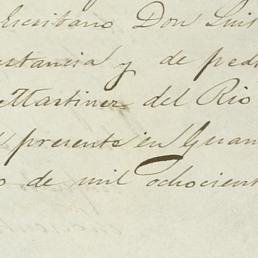 Escribano Don Luis
stancia y de pedi
Martinez del Rio
presente en Guan
o de mil ochocient